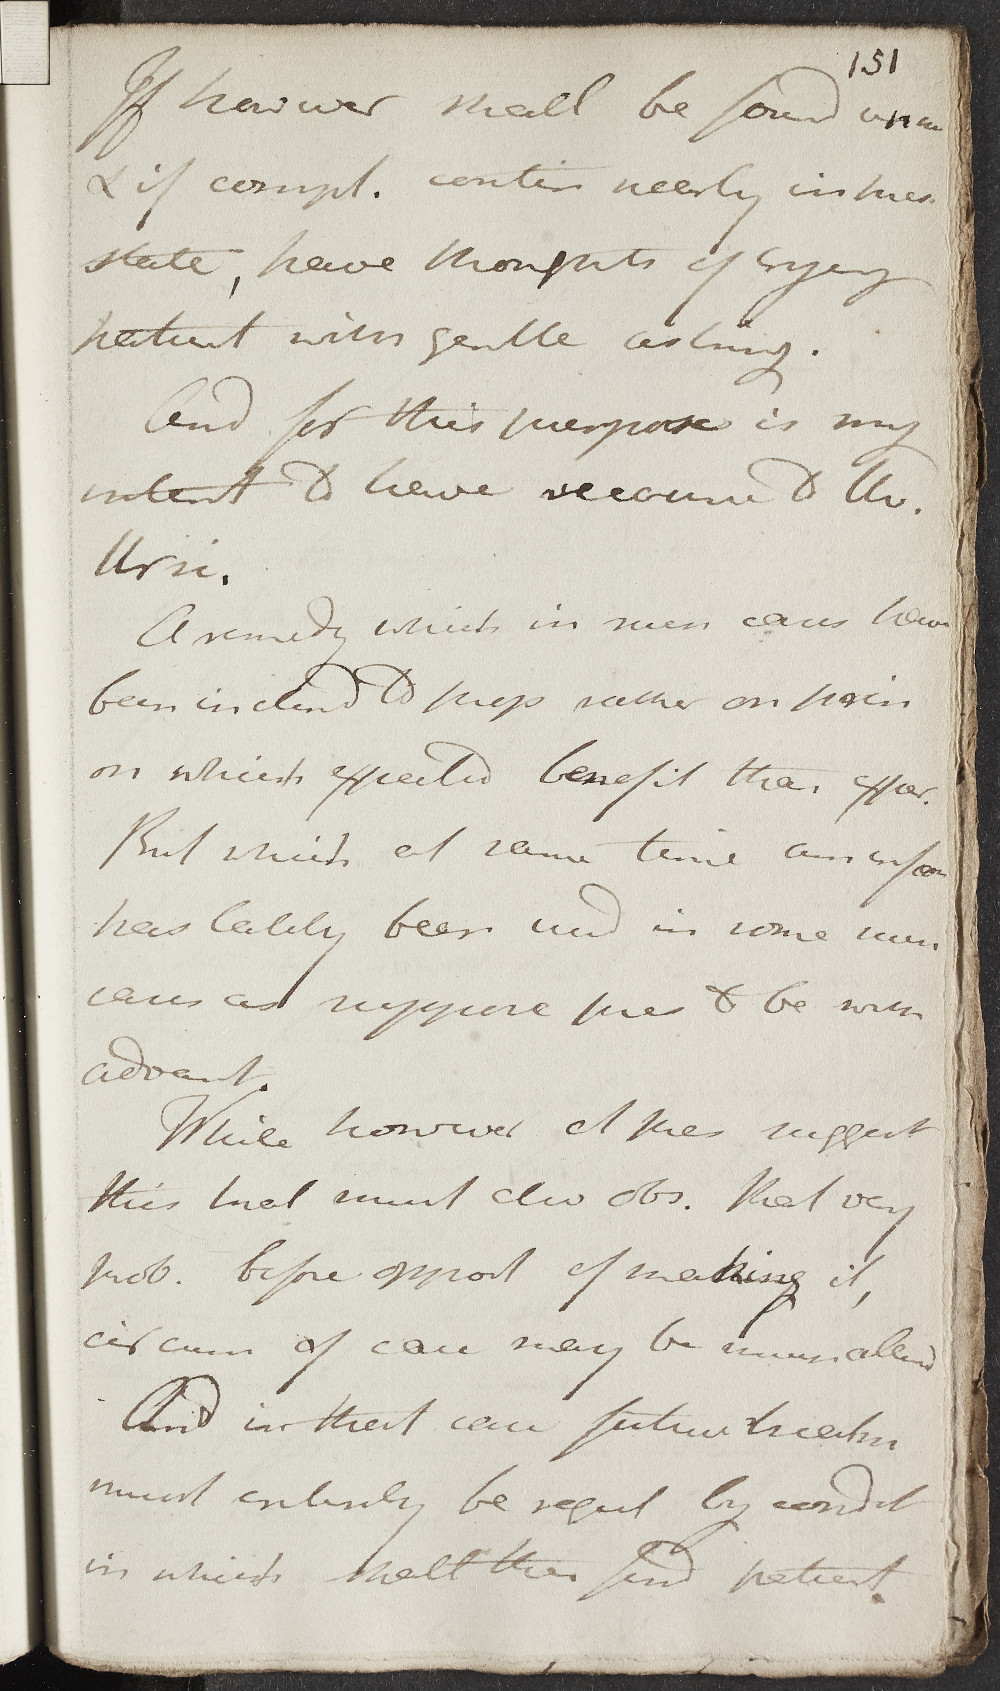 151
If however shall be found
& if compl. contin nearly in pres
state, have thoughts of trying
patient with gentle asking.
And for this purpose is my
intent to have recourse to Uv.
Ursi.
A remedy which in such cases have
been inclined to press rather on
on which expected benefit than exper.
But which at same time
has lately been used in some such
cases as suppose pres to be with
advant.
While however at pres suggest
this trial must also obs. that very
prob. before opport of making it,
circum of case may be much altered
And in that case future treatm
must entirely be regul by condit
in which shall then find patient.